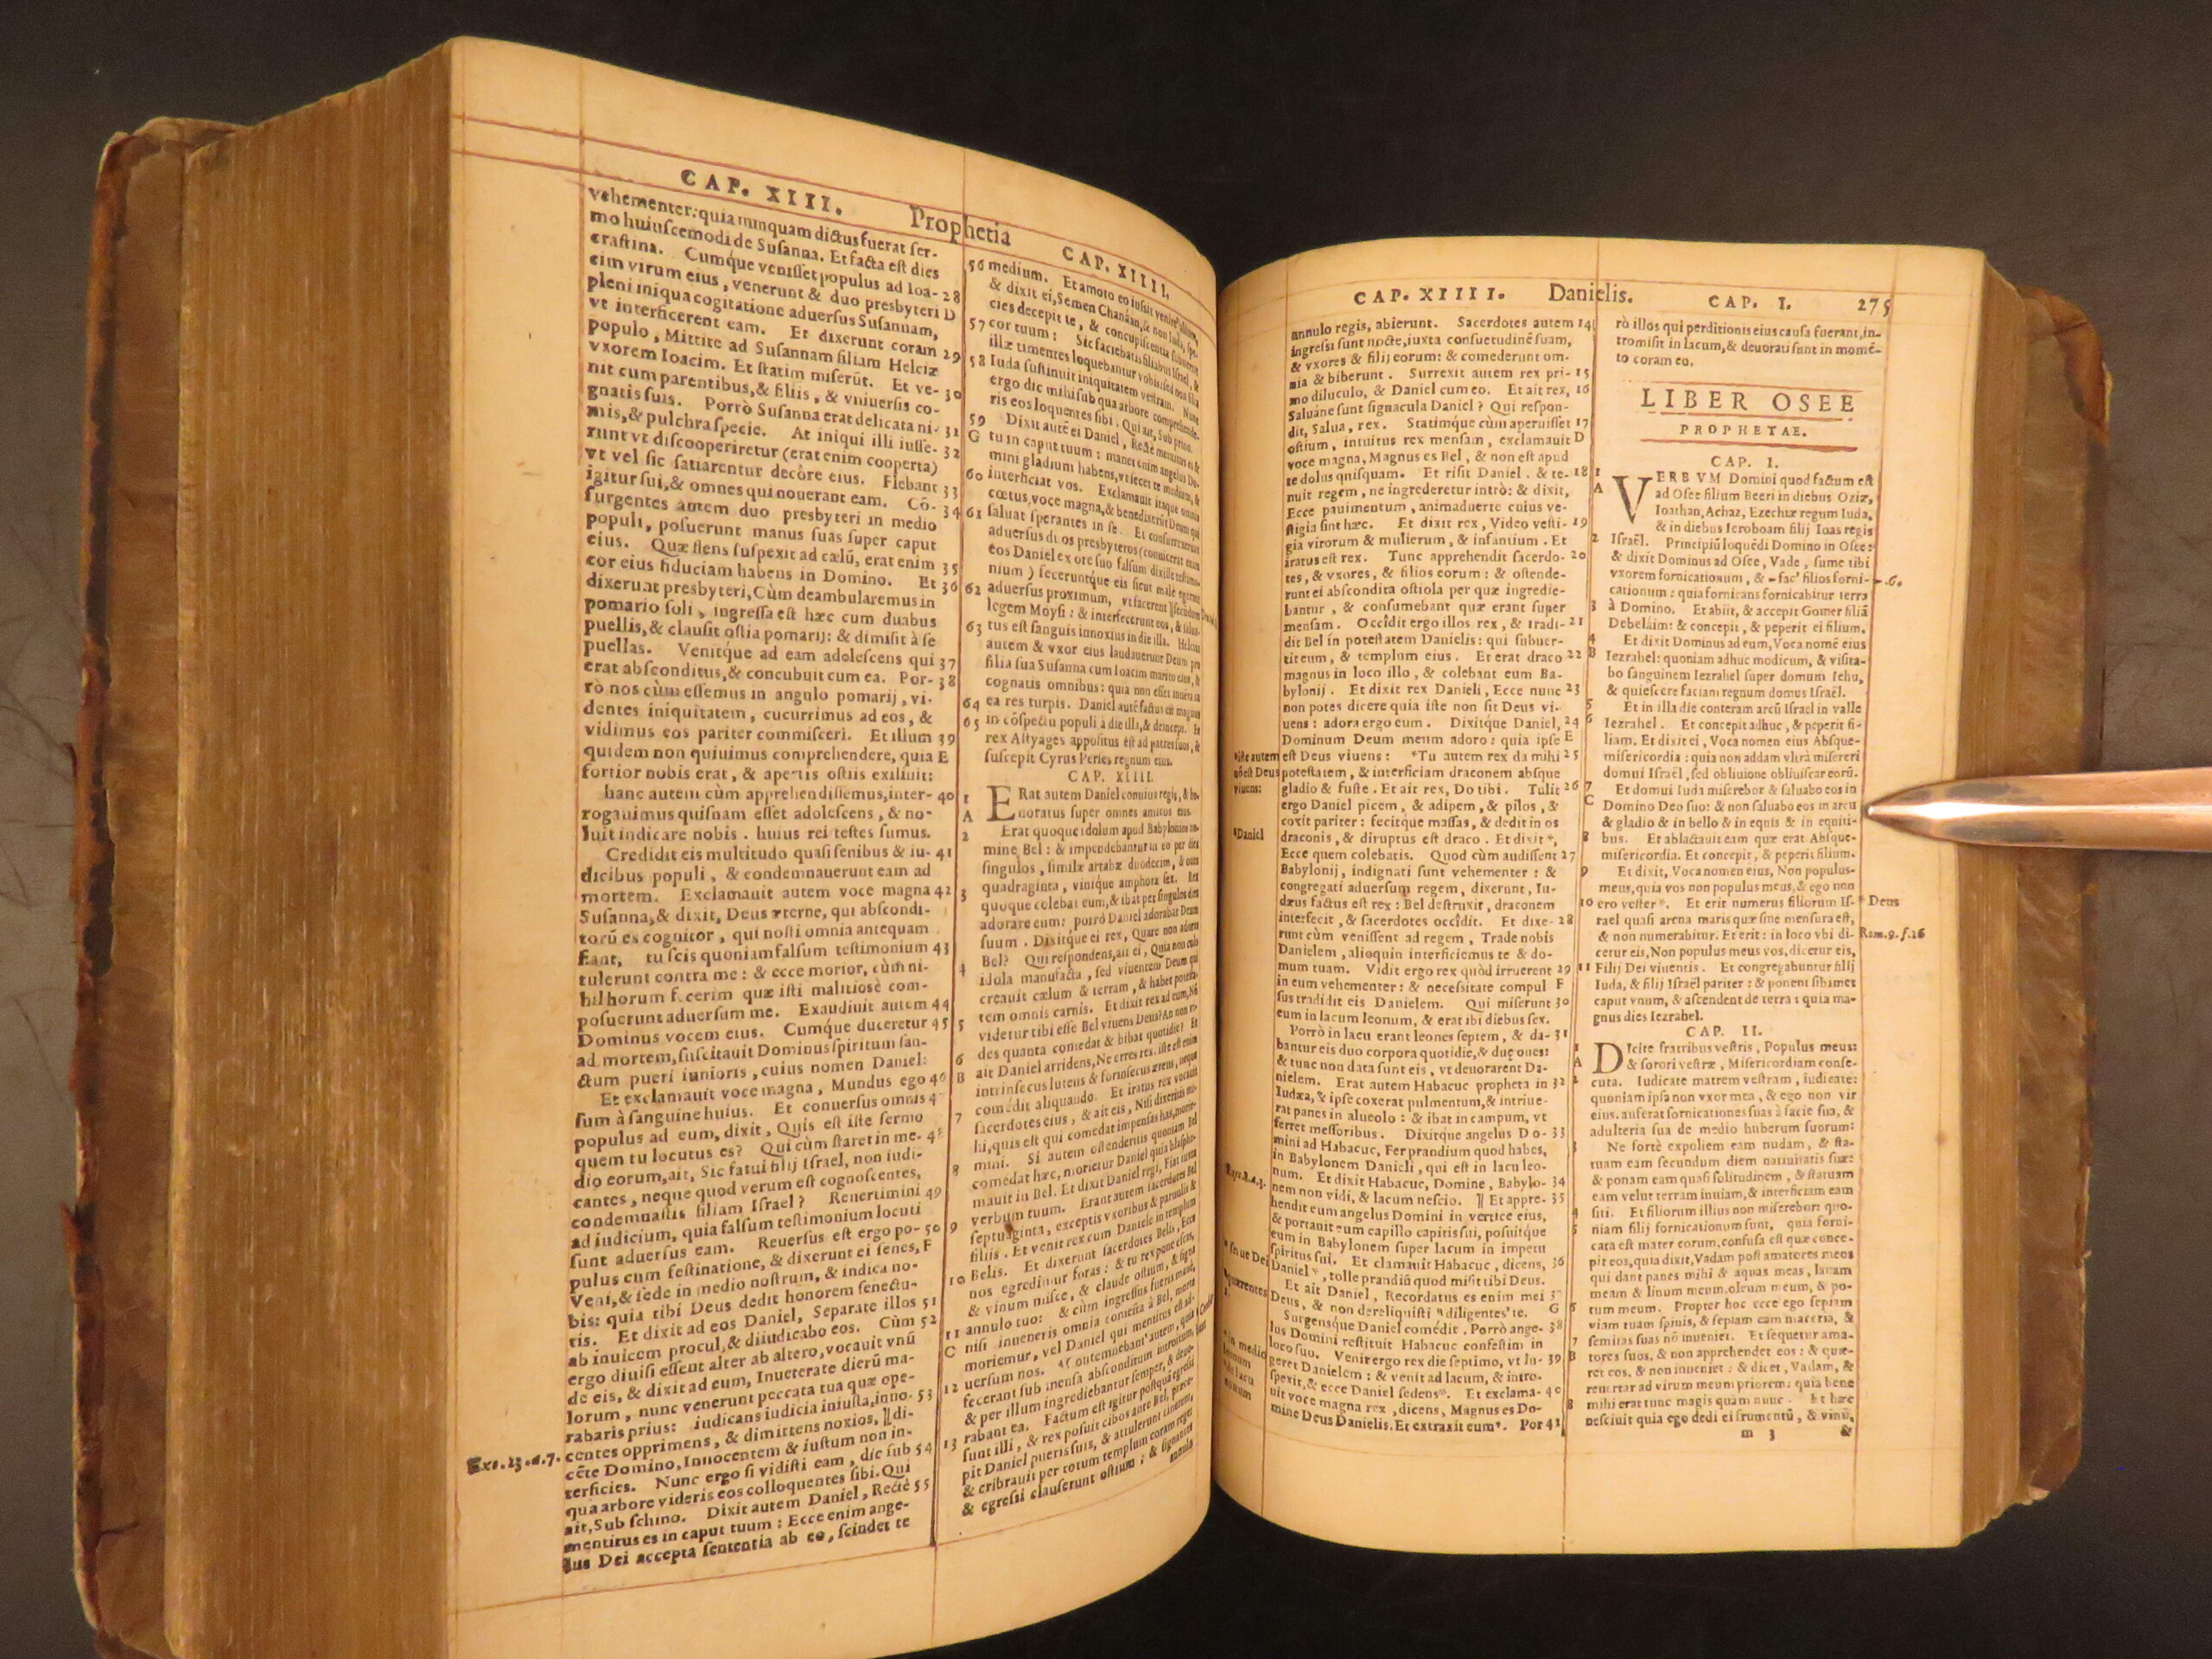 CAP. XIII. Prophetia CAP. XIIII.
vehementer: quia nunquam dictus fuerat ſer-
mo huiuſcemodi de Suſanna. Et facta eſt dies
craſtina. Cumque veniſſet populus ad Ioa- 28
cim virum eius, venerunt & duo presbyteri D
pleni iniqua cogitatione aduerſus Suſannam,
vt interficerent eam. Et dixerunt coram 29
populo, Mittite ad Suſannam filiam Helciæ
vxorem Ioacim. Et ſtatim miſerūt. Et ve- 30
nit cum parentibus, & filiis, & vniuerſis co-
gnatis ſuis. Porrò Suſanna erat delicata ni- 31
mis, & pulchra ſpecie. At iniqui illi iuſſe- 32
runt vt diſcooperiretur (erat enim cooperta)
vt vel ſic ſatiarentur decòre eius. Flebant 33
igitur ſui, & omnes qui nouerant eam. Cō- 34
ſurgentes autem duo presbyteri in medio
populi, poſuerunt manus ſuas ſuper caput
eius. Quæ flens ſuſpexit ad cælū, erat enim 35
cor eius fiduciam habens in Domino. Et 36
dixerunt presbyteri, Cùm deambularemus in
pomario ſoli, ingreſſa eſt hæc cum duabus
puellis, & clauſit oſtia pomarij: & dimiſit à ſe
puellas. Venitque ad eam adoleſcens qui 37
erat abſconditus, & concubuit cum ea. Por- 38
rò nos cùm eſſemus in angulo pomarij, vi-
dentes iniquitatem, cucurrimus ad eos, &
vidimus eos pariter commiſceri. Et illum 39
quidem non quiuimus comprehendere, quia E
fortior nobis erat, & apertis oſtiis exiliuit:
hanc autem cùm apprehendiſſemus, inter- 40
rogauimus quiſnam eſſet adoleſcens, & no-
luit indicare nobis. huius rei teſtes ſumus.
Credidit eis multitudo quaſi ſenibus & iu- 41
dicibus populi, & condemnauerunt eam ad
mortem. Exclamauit autem voce magna 42
Suſanna, & dixit, Deus æterne, qui abſcondi-
torū es cognitor, qui noſti omnia antequam
fiant, tu ſcis quoniam falſum teſtimonium 43
tulerunt contra me: & ecce morior, cùm ni-
hil horum fecerim quæ iſti malitiosè com-
poſuerunt aduerſum me. Exaudiuit autem 44
Dominus vocem eius. Cumque duceretur 45
ad mortem, ſuſcitauit Dominus ſpiritum ſan-
ctum pueri iunioris, cuius nomen Daniel:
Et exclamauit voce magna, Mundus ego 46
ſum à ſanguine huius. Et conuerſus omnis 47
populus ad eum, dixit, Quis eſt iſte ſermo
quem tu locutus es? Qui cùm ſtaret in me- 48
dio eorum, ait, Sic fatui filij Iſrael, non iudi-
cantes, neque quod verum eſt cognoſcentes,
condemnaſtis filiam Iſrael? Reuertimini 49
ad iudicium, quia falſum teſtimonium locuti
ſunt aduerſus eam. Reuerſus eſt ergo po- 50
pulus cum feſtinatione, & dixerunt ei ſenes, F
Veni, & ſede in medio noſtrum, & indica no-
bis: quia tibi Deus dedit honorem ſenectu-
tis. Et dixit ad eos Daniel, Separate illos 51
ab inuicem procul, & diiudicabo eos. Cùm 52
ergo diuiſi eſſent alter ab altero, vocauit vnū
de eis, & dixit ad eum, Inueterate dierū ma-
lorum, nunc venerunt peccata tua quæ ope-
rabaris prius: iudicans iudicia iniuſta, inno- 53
centes opprimens, & dimittens noxios, ‖di-
Exo.23.a.7.
cēte Domino, Innocentem & iuſtum non in-
terficies. Nunc ergo ſi vidiſti eam, dic ſub 54
qua arbore videris eos colloquentes ſibi. Qui
ait, Sub ſchino. Dixit autem Daniel, Rectè 55
mentitus es in caput tuum: Ecce enim ange-
lus Dei accepta ſententia ab eo, ſcindet te
56 medium. Et amoto eo iuſsit venire alium,
& dixit ei, Semen Chanáan, & non Iuda, ſpe-
cies decepit te, & concupiſcentia ſubuertit
57 cor tuum: Sic faciebatis filiabus Iſrael, &
illæ timentes loquebantur vobis: ſed non filia
58 Iuda ſuſtinuit iniquitatem veſtram. Nunc
ergo dic mihi ſub qua arbore comprehende-
ris eos loquentes ſibi. Qui ait, Sub prino.
59 Dixit autē ei Daniel, Rectè mentitus es &
G tu in caput tuum: manet enim angelus Do-
mini gladium habens, vt ſecet te medium, &
60 interficiat vos. Exclamauit itaque omnis
cœtus, voce magna, & benedixerūt Deum qui
61 ſaluat ſperantes in ſe. Et conſurrexerunt
aduerſus duos presbyteros (conuicerat enim
eos Daniel ex ore ſuo falſum dixiſſe teſtimo-
nium) feceruntque eis ſicut malè egerant
62 aduerſus proximum, vt facerent ‖ſecundum
legem Moyſi: & interfecerunt eos, & ſalua-
63 tus eſt ſanguis innoxius in die illa. Helcias
autem & vxor eius laudauerunt Deum pro
filia ſua Suſanna cum Ioacim marito eius, &
cognatis omnibus: quia non eſſet inuenta in
64 ea res turpis. Daniel autē factus eſt magnus
65 in cōſpectu populi à die illa, & deinceps. Et
rex Aſtyages appoſitus eſt ad patres ſuos, &
ſuſcepit Cyrus Perſes regnum eius.
CAP. XIIII.
1 ERat autem Daniel conuiua regis, & ho-
A noratus ſuper omnes amicos eius.
2 Erat quoque idolum apud Babylonios no-
mine Bel: & impendebantur in eo per dies
ſingulos, ſimilæ artabæ duodecim, & oues
quadraginta, vinique amphoræ ſex. Rex
3 quoque colebat eum, & ibat per ſingulos dies
adorare eum: porrò Daniel adorabat Deum
ſuum. Dixitque ei rex, Quare non adoras
Bel? Qui reſpondens, ait ei, Quia non colo
4 idola manufacta, ſed viuentem Deum qui
creauit cælum & terram, & habet poteſta-
tem omnis carnis. Et dixit rex ad eum, Nō
5 videtur tibi eſſe Bel viuens Deus? An non vi-
des quanta comedat & bibat quotidie? Et
6 ait Daniel arridens, Ne erres rex. iſte eſt enim
B intrinſecus luteus & forinſecus æreus, neque
comēdit aliquando. Et iratus rex vocauit
7 ſacerdotes eius, & ait eis, Niſi dixeritis mi-
hi, quis eſt qui comedat impenſas has, morie-
mini. Si autem oſtenderitis quoniam Bel
8 comedat hæc, morietur Daniel quia blaſphe-
mauit in Bel. Et dixit Daniel regi, Fiat iuxta
verbum tuum. Erant autem ſacerdotes Bel
9 ſeptuaginta, exceptis vxoribus & paruulis &
filiis. Et venit rex cum Daniele in templum
10 Belis. Et dixerunt ſacerdotes Belis, Ecce
nos egredimur foras: & tu rex pone eſcas,
& vinum miſce, & claude oſtium, & ſigna
11 annulo tuo: & cùm ingreſſus fueris mane,
C niſi inueneris omnia comeſta à Bel, morte
moriemur, vel Daniel qui mentitus eſt ad-
12 uerſum nos. Contemnebant autem, quia
fecerant ſub menſa abſconditum introitum,
& per illum ingrediebantur ſemper, & deuo-
13 rabant ea. Factum eſt igitur poſtquā egreſſi
ſunt illi, & rex poſuit cibos ante Bel, præce-
pit Daniel pueris ſuis, & attulerunt cinerem,
& cribrauit per totum templum coram rege:
& egreſsi clauſerunt oſtium: & ſignantes
annulo
CAP. XIIII. Danielis. CAP. I. 275
annulo regis, abierunt. Sacerdotes autem 14
ingreſsi ſunt nocte, iuxta conſuetudinē ſuam,
& vxores & filij eorum: & comederunt om-
nia & biberunt. Surrexit autem rex pri- 15
mo diluculo, & Daniel cum eo. Et ait rex, 16
Saluáne ſunt ſignacula Daniel? Qui reſpon-
dit, Salua, rex. Statimque cùm aperuiſſet 17
oſtium, intuitus rex menſam, exclamauit D
voce magna, Magnus es Bel, & non eſt apud
te dolus quiſquam. Et riſit Daniel. & te- 18
nuit regem, ne ingrederetur intrò: & dixit,
Ecce pauimentum, animaduerte cuius ve-
ſtigia ſint hæc. Et dixit rex, Video veſti- 19
gia virorum & mulierum, & infantium. Et
iratus eſt rex. Tunc apprehendit ſacerdo- 20
tes, & vxores, & filios eorum: & oſtende-
runt ei abſcondita oſtiola per quæ ingredie-
bantur, & conſumebant quæ erant ſuper
menſam. Occîdit ergo illos rex, & tradi- 21
dit Bel in poteſtatem Danielis: qui ſubuer-
tit eum, & templum eius. Et erat draco 22
magnus in loco illo, & colebant eum Ba-
bylonij. Et dixit rex Danieli, Ecce nunc 23
non potes dicere quia iſte non ſit Deus vi-
uens: adora ergo eum. Dixitque Daniel, 24
Dominum Deum meum adoro: quia ipſe E
*iſte autem nō eſt Deus viuens:
eſt Deus viuens: *Tu autem rex da mihi 25
poteſtatem, & interficiam draconem abſque
gladio & fuſte. Et ait rex, Do tibi. Tulit 26
ergo Daniel picem, & adipem, & pilos, &
coxit pariter: fecitque maſſas, & dedit in os
*Daniel
draconis, & diruptus eſt draco. Et dixit*,
Ecce quem colebatis. Quod cùm audiſſent 27
Babylonij, indignati ſunt vehementer: &
congregati aduerſum regem, dixerunt, Iu-
dæus factus eſt rex: Bel deſtruxit, draconem
interfecit, & ſacerdotes occîdit. Et dixe- 28
runt cùm veniſſent ad regem, Trade nobis
Danielem, alioquin interficiemus te & do-
mum tuam. Vidit ergo rex quòd irruerent 29
in eum vehementer: & neceſsitate compul F
ſus tradidit eis Danielem. Qui miſerunt 30
eum in lacum leonum, & erat ibi diebus ſex.
Porrò in lacu erant leones ſeptem, & da- 31
bantur eis duo corpora quotidie, & duę oues:
& tunc non data ſunt eis, vt deuorarent Da-
nielem. Erat autem Habacuc propheta in 32
Iudæa, & ipſe coxerat pulmentum, & intriue-
rat panes in alueolo: & ibat in campum, vt
ferret meſſoribus. Dixitque angelus Do- 33
mini ad Habacuc, Fer prandium quod habes,
in Babylonem Danieli, qui eſt in lacu leo-
num. Et dixit Habacuc, Domine, Babylo- 34
nem non vidi, & lacum neſcio. ‖ Et appre- 35
hendit eum angelus Domini in vertice eius,
& portauit eum capillo capitis ſui, poſuitque
eum in Babylonem ſuper lacum in impetu
ſpiritus ſui. Et clamauit Habacuc, dicens, 36
Daniel*, tolle prandiū quod miſit tibi Deus.
Et ait Daniel, Recordatus es enim mei 37
Deus, & non dereliquiſti "diligentes" te. G
Surgensque Daniel comēdit. Porrò ange- 38
lus Domini reſtituit Habacuc confeſtim in
loco ſuo. Venit ergo rex die ſeptimo, vt lu- 39
geret Danielem: & venit ad lacum, & intro-
ſpexit, & ecce Daniel ſedens*. Et exclama- 40
uit voce magna rex, dicens, Magnus es Do-
mine Deus Danielis. Et extraxit eum*. Por 41
rò illos qui perditionis eius cauſa fuerant, in-
tromiſit in lacum, & deuorati ſunt in momē-
to coram eo.
LIBER OSEE
PROPHETAE.
CAP. I.
1 VERBVM Domini quod factum eſt
A ad Oſee filium Beeri in diebus Oziæ,
Ioathan, Achaz, Ezechiæ regum Iuda,
& in diebus Ieroboam filij Ioas regis
2 Iſraël. Principiū loquēdi Domino in Oſee:
& dixit Dominus ad Oſee, Vade, ſume tibi
vxorem fornicationum, & ~fac' filios forni-
cationum: quia fornicans fornicabitur terra
3 à Domino. Et abiit, & accepit Gomer filiā
Debeláim: & concepit, & peperit ei filium.
4 Et dixit Dominus ad eum, Voca nomē eius
B Iezrahel: quoniam adhuc modicum, & viſita-
bo ſanguinem Iezrahel ſuper domum Iehu,
& quieſcere faciam regnum domus Iſraël.
5 Et in illa die conteram arcū Iſrael in valle
6 Iezrahel. Et concepit adhuc, & peperit fi-
liam. Et dixit ei, Voca nomen eius Abſque-
miſericordia: quia non addam vltrà miſereri
domui Iſraël, ſed obliuione obliuiſcar eorū.
7 Et domui Iuda miſerebor & ſaluabo eos in
C Domino Deo ſuo: & non ſaluabo eos in arcu
& gladio & in bello & in equis & in equiti-
8 bus. Et ablactauit eam quæ erat Abſque-
miſericordia. Et concepit, & peperit filium.
9 Et dixit, Voca nomen eius, Non populus-
meus, quia vos non populus meus, & ego non
10 ero veſter*. Et erit numerus filiorum Iſ-
* Deus
rael quaſi arena maris quæ ſine menſura eſt,
& non numerabitur. Et erit: in loco vbi di-
Rom.9.f.26
cetur eis, Non populus meus vos, dicetur eis,
11 Filij Dei viuentis. Et congregabuntur filij
Iuda, & filij Iſraël pariter: & ponent ſibimet
caput vnum, & aſcendent de terra: quia ma-
gnus dies Iezrahel.
CAP. II.
1 DIcite fratribus veſtris, Populus meus:
A & ſorori veſtræ, Miſericordiam conſe-
2 cuta. Iudicate matrem veſtram, iudicate:
quoniam ipſa non vxor mea, & ego non vir
eius. auferat fornicationes ſuas à facie ſua, &
adulteria ſua de medio huberum ſuorum:
3 Ne fortè expoliem eam nudam, & ſta-
tuam eam ſecundum diem natiuitatis ſuæ:
& ponam eam quaſi ſolitudinem, & ſtatuam
eam velut terram inuiam, & interficiam eam
4 ſiti. Et filiorum illius non miſerebor: quo-
5 niam filij fornicationum ſunt, quia forni-
cata eſt mater eorum, confuſa eſt quæ conce-
pit eos, quia dixit, Vadam poſt amatores meos
qui dant panes mihi & aquas meas, lanam
meam & linum meum, oleum meum, & po-
6 tum meum. Propter hoc ecce ego ſepiam
viam tuam ſpinis, & ſepiam eam maceria, &
7 ſemitas ſuas nō inueniet. Et ſequetur ama-
B tores ſuos, & non apprehendet eos: & quæ-
ret eos, & non inueniet: & dicet, Vadam, &
reuertar ad virum meum priorem: quia bene
8 mihi erat tunc magis quàm nunc. Et hæc
neſciuit quia ego dedi ei frumentū, & vinū,
m 3 &